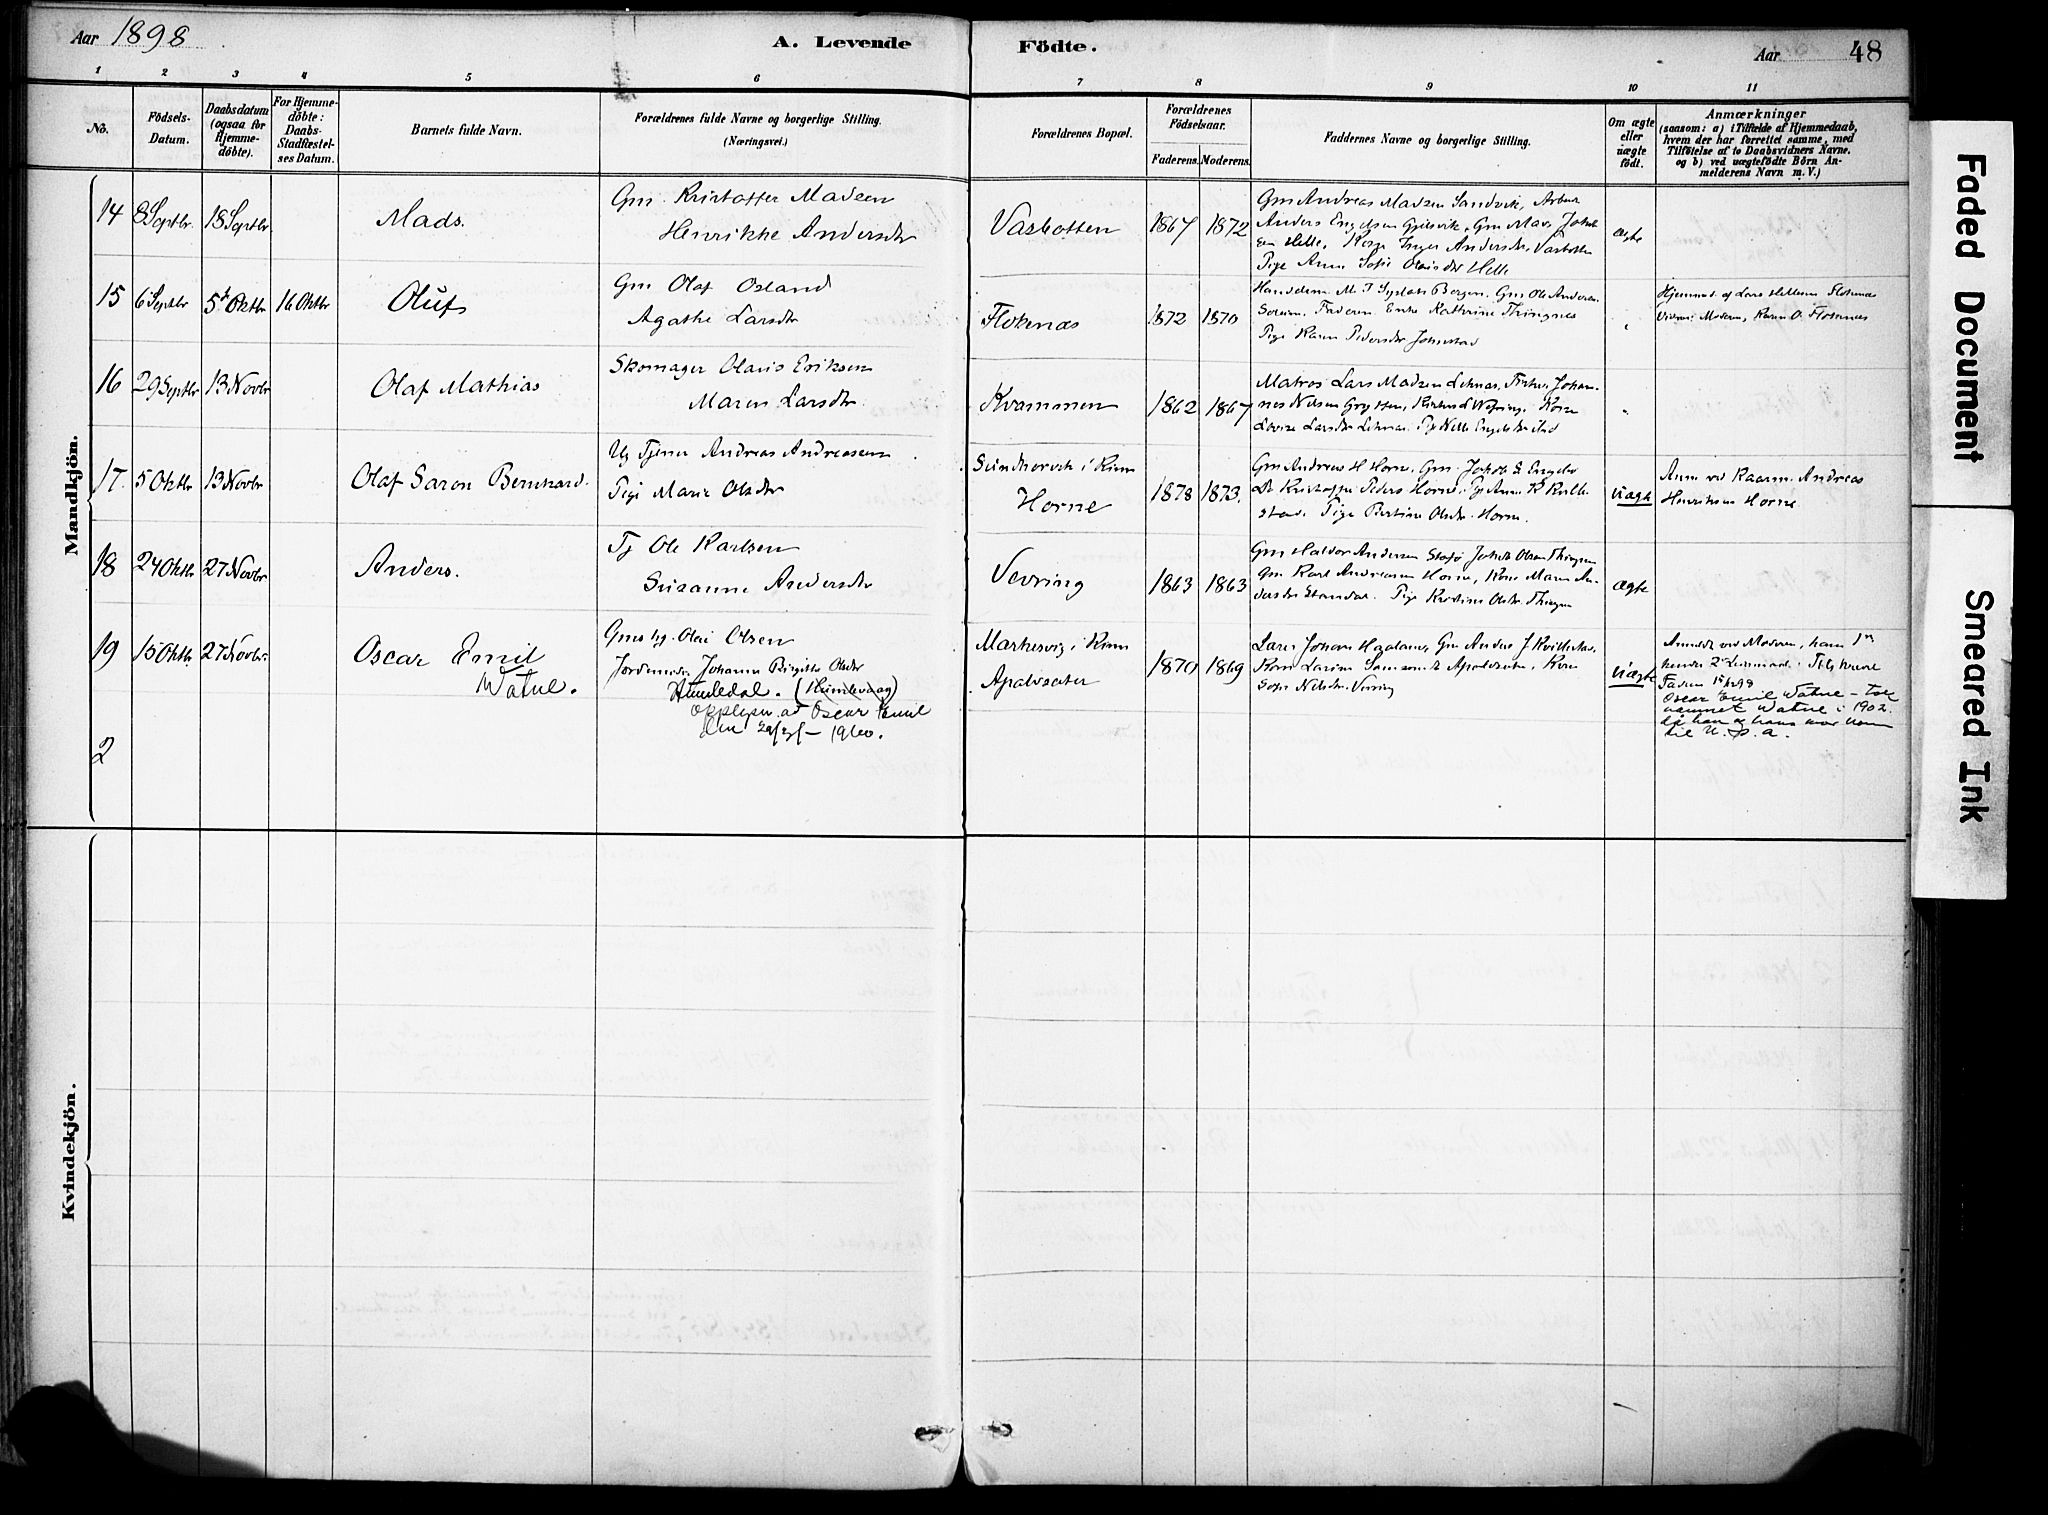 Aar 1898
A. Levende
Födte.
Aar
48
1 2 3 4 5 6 7 8 9 10 11
No.
Födsels-
Datum.
Daabsdatum
(ogsaa for
Hjemme-
döbte).
For Hjemme-
döbte:
Daabs-
Stadfæstel-
ses Datum.
Barnets fulde Navn.
Forældrenes fulde Navne og borgerlige Stilling.
(Næringsvei.)
Forældrenes Bopæl.
Forældrenes
Födselsaar.
Faderens.
Moderens.
Faddernes Navne og borgerlige Stilling.
Om ægte
eller
uægte
födt.
Anmærkninger
(saasom: a) i Tilfælde af Hjemmedaab,
hvem der har forrettet samme, med
Tilföielse af to Daabsvidners Navne.
og b) ved uægtefödte Börn An-
melderens Navn m. V.)
Mandkjön.
14 8 Septbr 18 Septbr Mads.
Gm. Kristoffer Madsen
Henrikke Andersdtr
Vasbotten 1867 1872
Gm Andreas Madsen Sandvik, Arbmd
Anders Engelsen Gjelsvik, Gm Mads Johan
sen Helle, Kone Inger Andersdtr Vasbotten
Pige Anna Sofie Olaisdtr Helle
ægte
15 6 Septbr 5 Oktbr 16 Oktbr Oluf
Gm Olaf Osland
Agathe Larsdtr
Flokenæs 1872 1870
Bergen. Gm Ole Andersen
Faderen Enke Kathrine Thingnes
Pige Karen Pedersdtr
Hjemmed. af Lars Flokenæs
Moderen, Karen O. Flokenæs
16 29 Septbr 13 Novbr Olaf Mathias
Skomager Olavis Eriksen
Maren Larsdtr
Kvammen 1862 1867
Matros Lars Madsen Leknæs, Johan-
nes Nielsen
Lovise Larsdtr
"
17. 5 Oktbr 13 Novbr Olaf Saron Bernhard.
Ug Tjener Andreas Andreasen
Pige Marie Olsdtr
i Kinn
Horne 1878 1873.
Gm Andreas H Horne, Gm Jakob E Engebø
Horne, Pige Anne K Kvelle
stad Pige Bertine Olsdtr Horne.
uægte
Anm ved Kaarm. Andreas
Henriksen Horne
18 24 Oktbr 27 Novbr Anders.
Tj Ole Karlsen
Susanne Andersdtr
Vevring 1863 1863
Gm Haldor Andersen Jakob Olsen Thingnes
Gm Karl Andreasen Horne, Kone Maren An-
dersdtr Standal. Pige Kristine Olsdtr Thingnes
ægte
19 15 Oktbr 27 Novbr. Oscar Emil
Watne.
Olai Olsen
Jordemoder Johanne Birgitte Olsdtr
Humledal. (Humlevaag)
opplysn. at Oscar Emil
den 29/3 - 1960.
Markesvig i Kinn
Apalsæter 1870 1869
Lars Johan Gm Anders J Kvellestad
Kone Larine Apalsæter, Kone
Sofie Nilsdtr. Vevring
uægte
Anmeldt ved Moderen, hans 1ste
hendes 2det Leiermaal.
Faderen
Oscar Emil Watne - tok
navnet Watne i 1902
då han og hans mor kom
til U. S. A.
2
Kvindekjön.
Faded Document
Smeared Ink